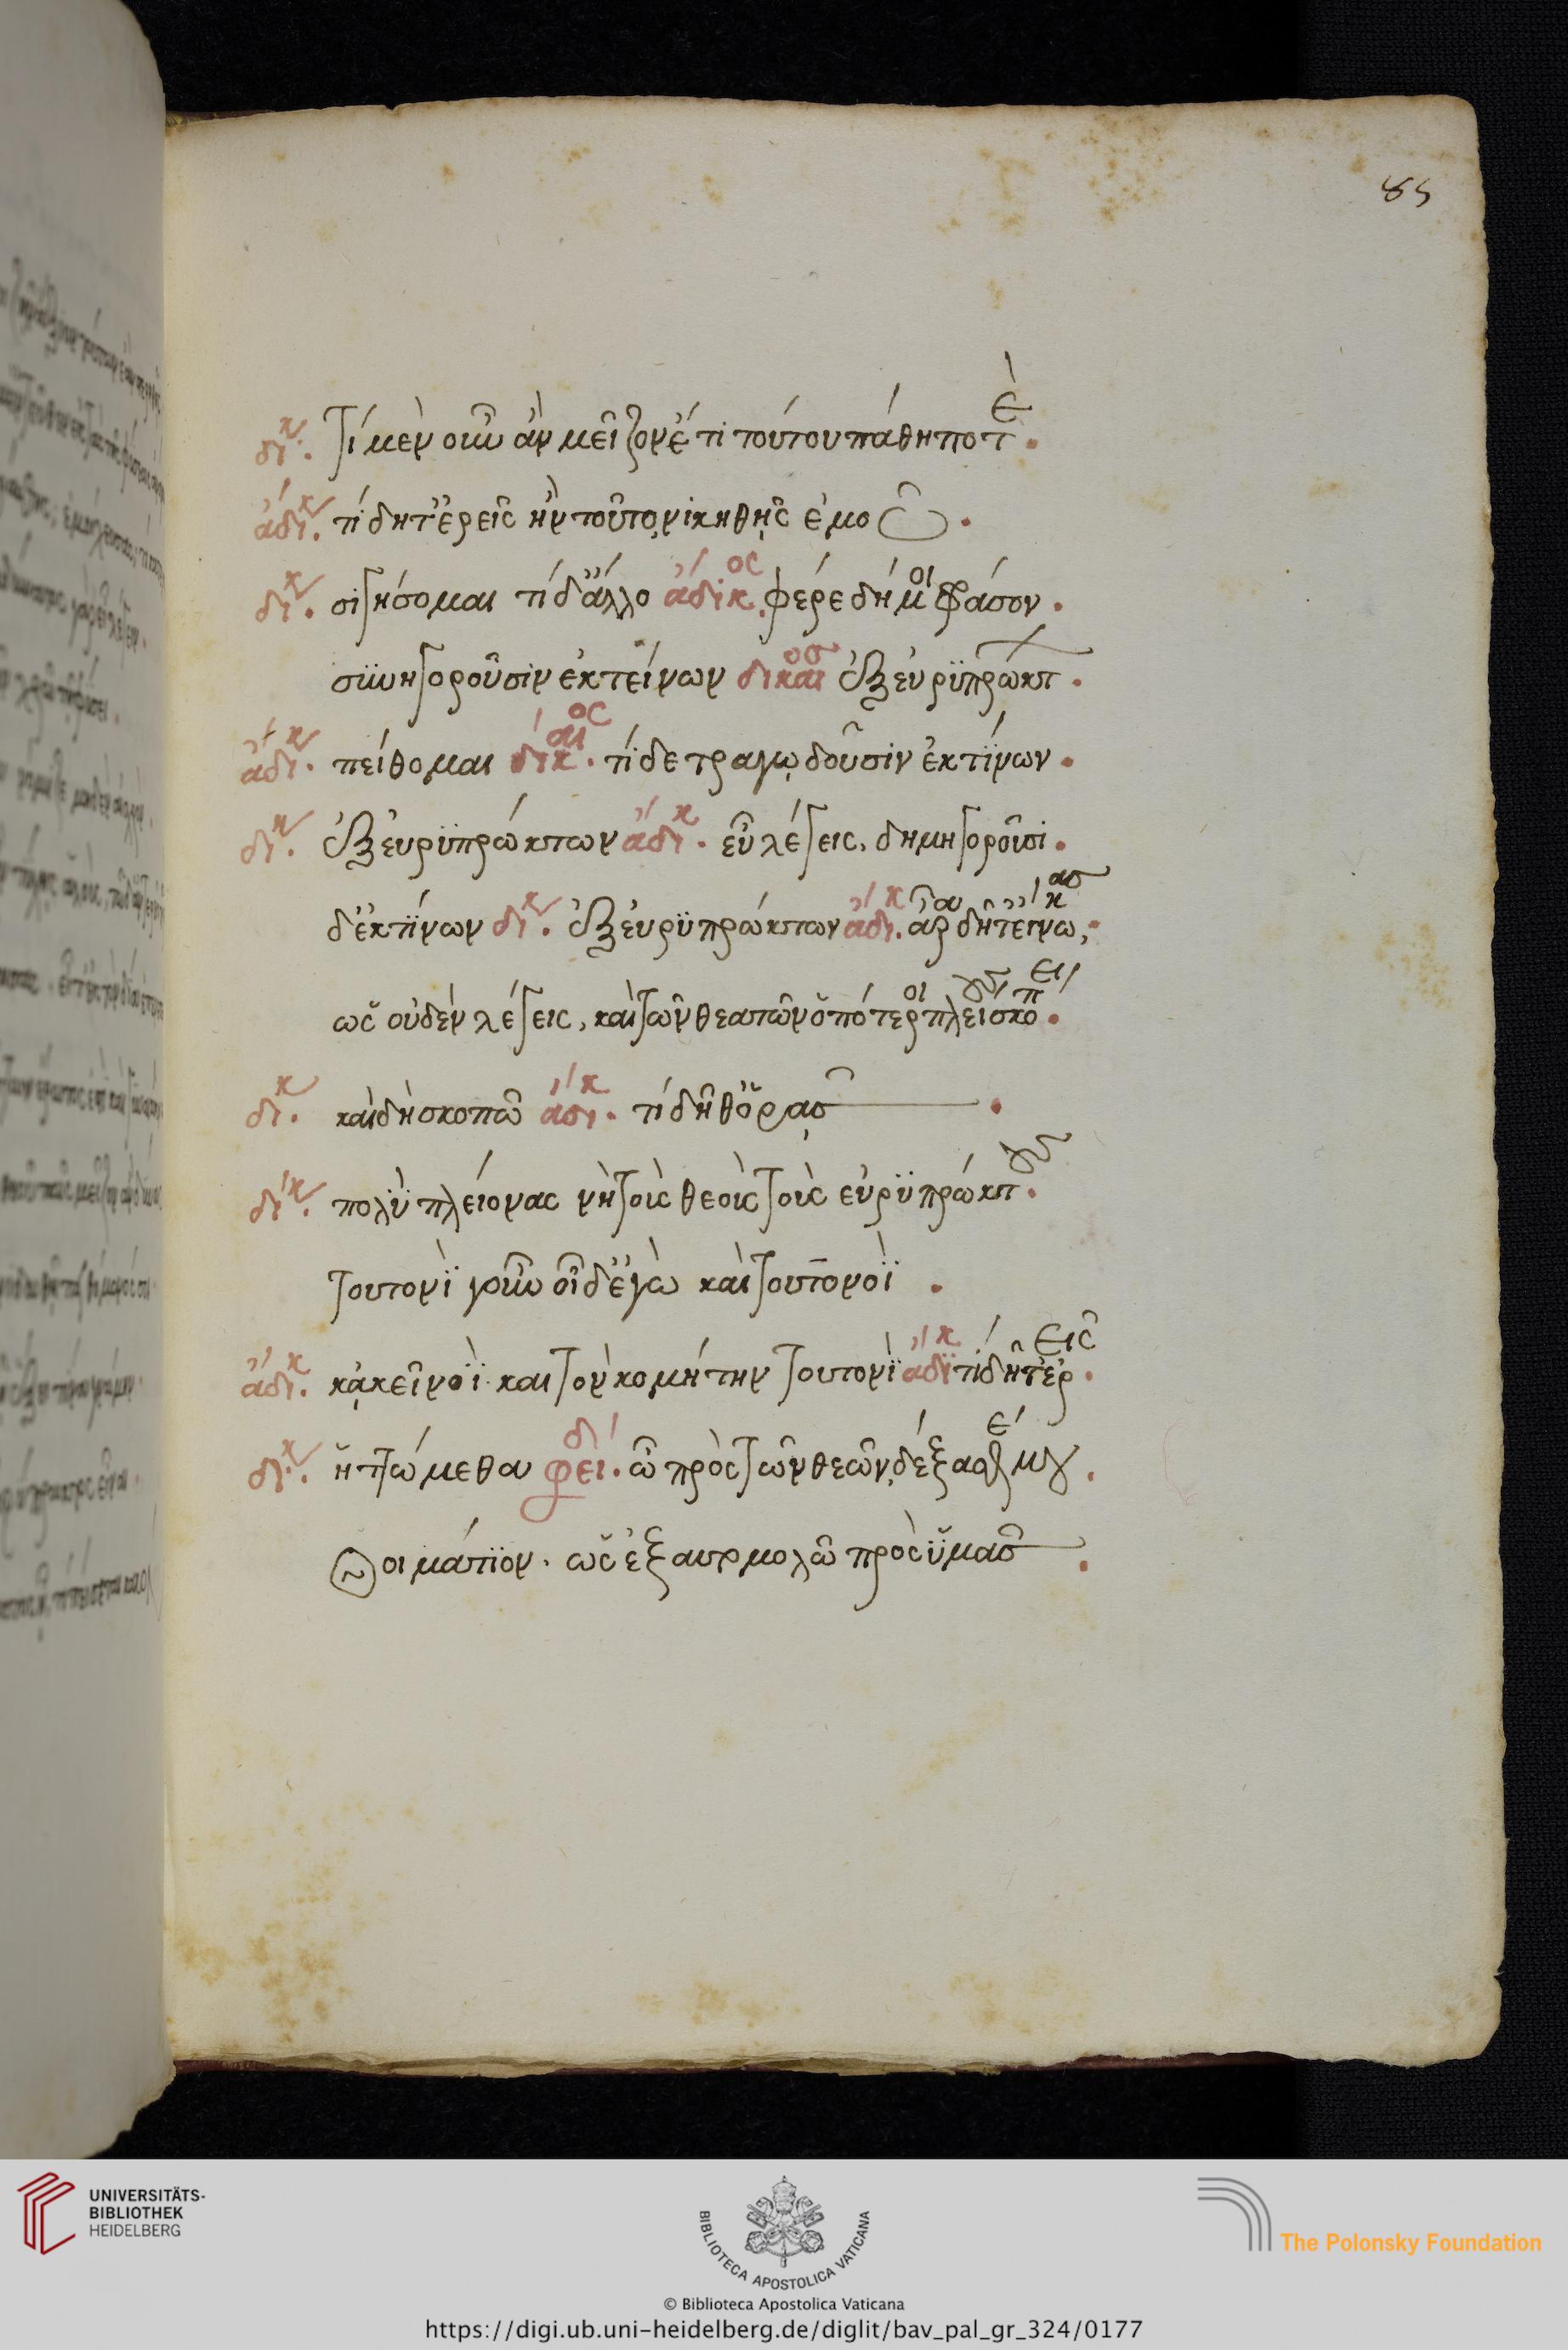 85
δικ. τί μὲν οὖν ἂν μεῖζον ἔτι τούτου πάθη ποτὲ.
ἄδικ. τί δητ' ἐρεῖς ἢν τοῦτο νικηθῇς ἐμοῦ.
δικ. σιγήσομαι τί δ' ἄλλο ἄδικος. φέρε δή μοι φράσον.
συνηγοροῦσιν ἐκ τείνων δίκαιος ἐξ εὐρϋπρώκτ.
ἄδικ. πείθομαι δίκαιος. τί δε τραγῳδοῦσιν ἐκ τίνων.
δικ. ἐξ ευρϋπρώκτων ἄδικ. εὖ λέγεις, δημηγοροῦσι.
δ' ἐκ τίνων δικ. ἐξ εὐρϋπρώκτων ἄδικ. ἆρα δῆτ' ἔγνωκας,
ὡς οὐδὲν λέγεις, καὶ τῶν θεατῶν ὁπότεροι πλείους σκόπει.
δικ. καὶ δὴ σκοπῶ ἄδικ. τί δῆθ' ὁρᾷς.
δικ. πολὺ πλείονας νὴ τοὺς θεοὺς τοὺς εὐρϋπρώκτους.
τουτονὶ γοῦν οἶδ' ἔγὼ καὶ τουτονοὶ.
ἄδικ. κᾀκεῖνοὶ και τὸν κομήτην τουτονὶ ἄδικ τί δῆτ' ἐρεῖς.
δικ. ἡττώμεθα φειδί. ὦ πρὸς τῶν θεῶν, δέξασθέ μου.
θοιμάτιον. ὡς ἐξαυτομολῶ πρὸς ὑμᾶς.
UNIVERSITÄTS-
BIBLIOTHEK
HEIDELBERG
BIBLIOTECA APOSTOLICA VATICANA
The Polonsky Foundation
© Biblioteca Apostolica Vaticana
https://digi.ub.uni-heidelberg.de/diglit/bav_pal_gr_324/0177